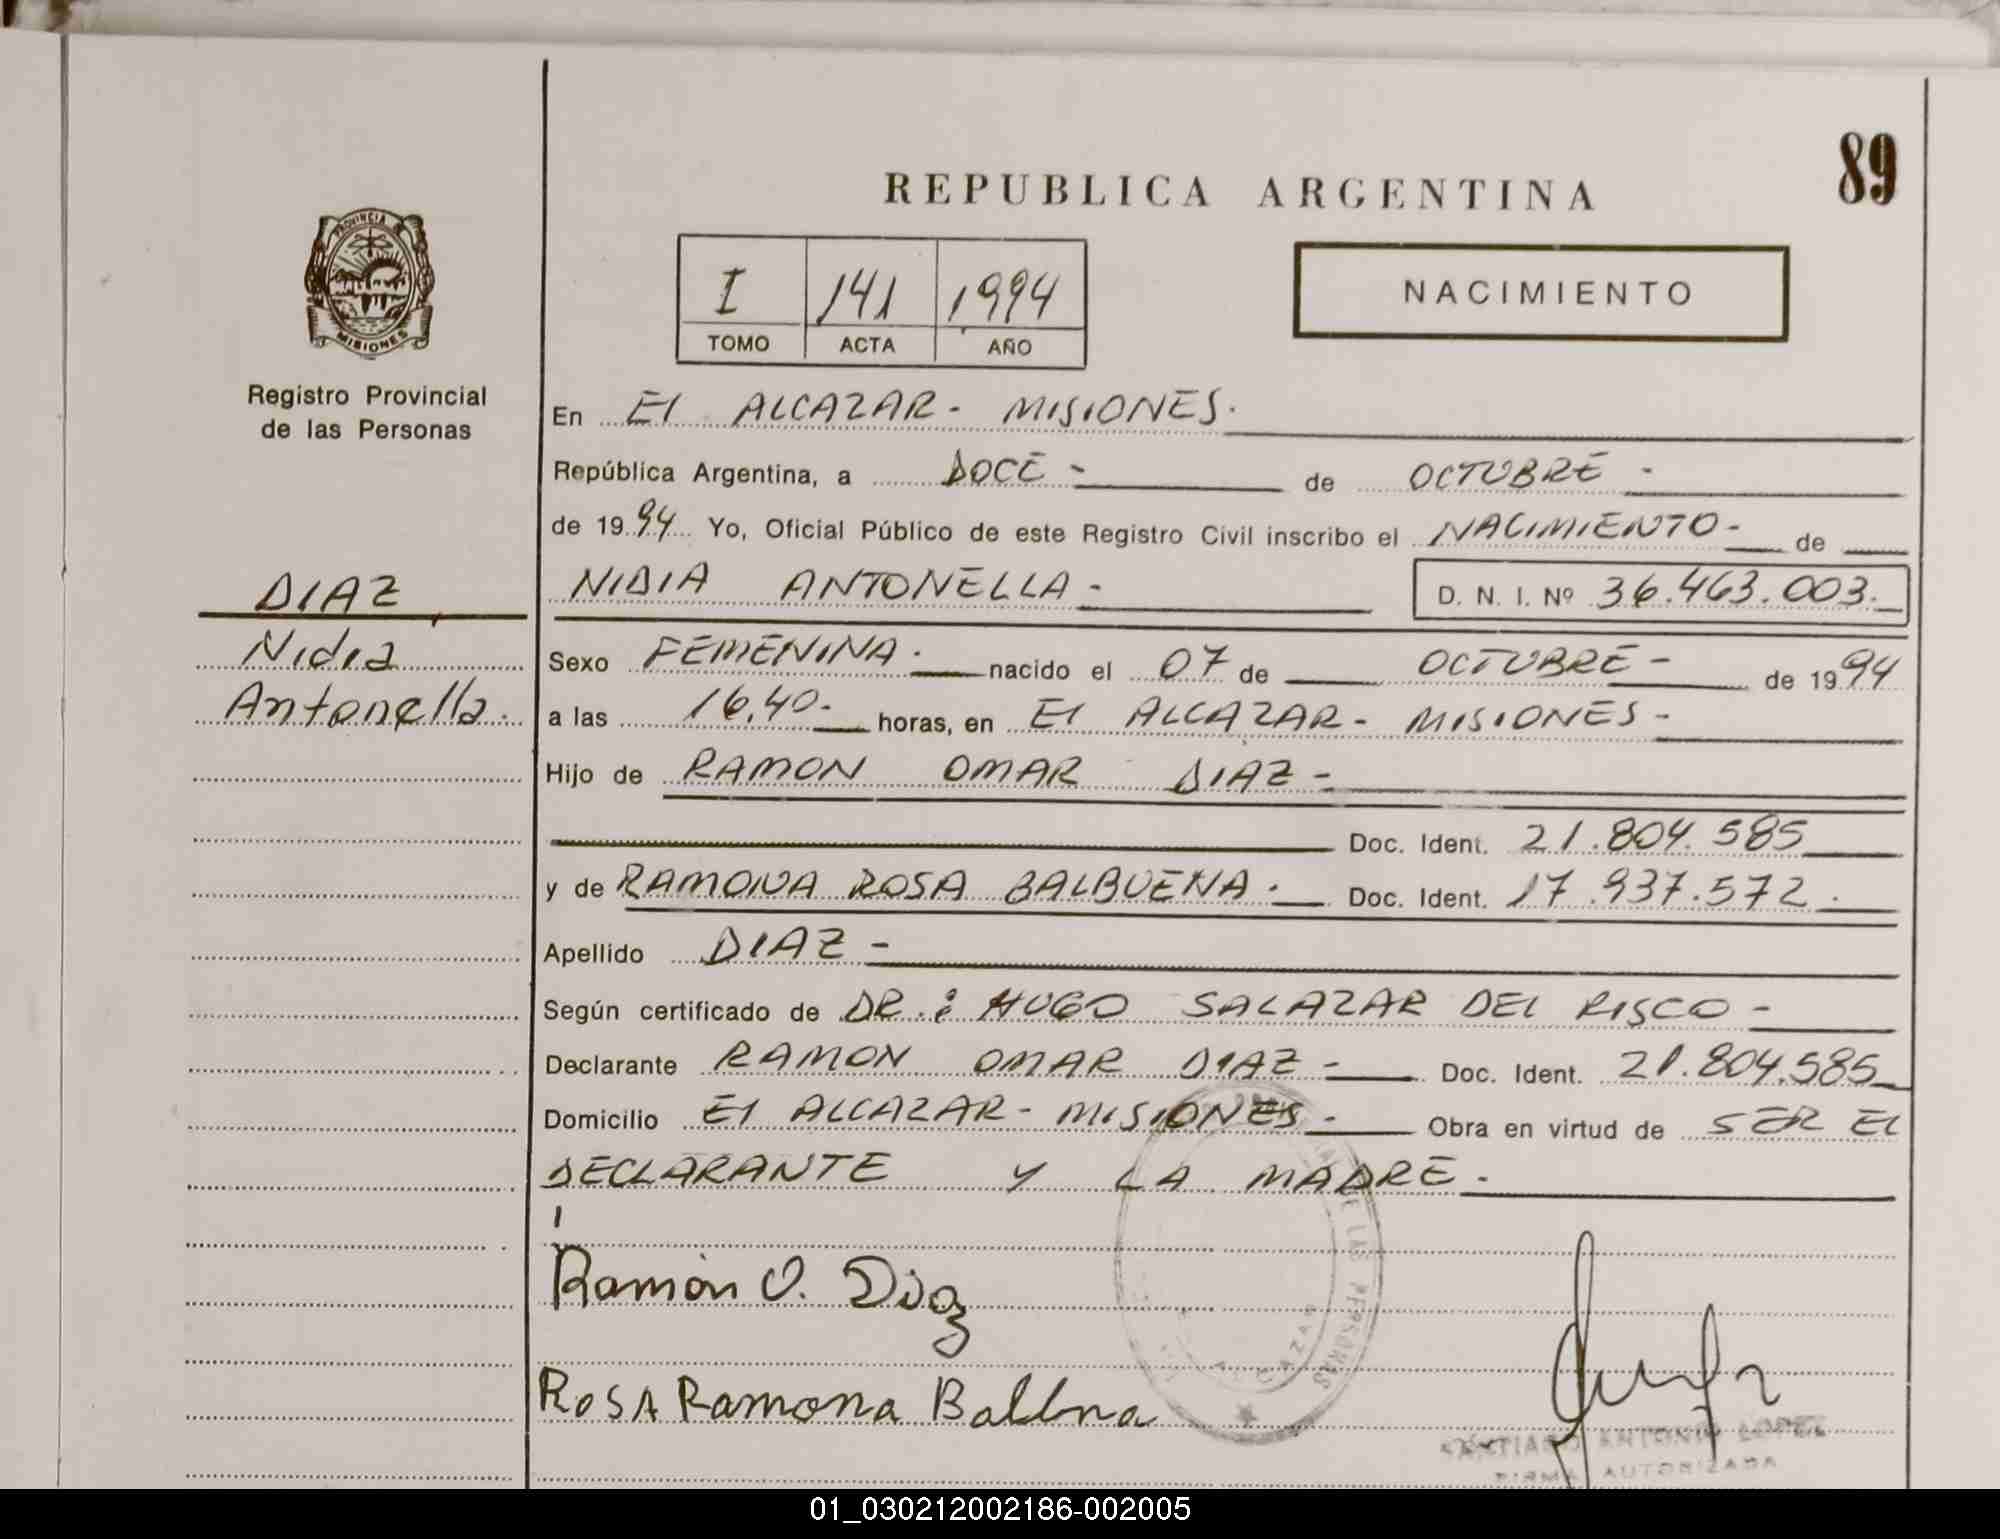 89
REPUBLICA ARGENTINA
PROVINCIA DE
MISIONES
I 141 1994
TOMO ACTA AÑO
NACIMIENTO
Registro Provincial
de las Personas
En El ALCAZAR - MISIONES.
República Argentina, a DOCE - de OCTUBRE -
de 1994 Yo, Oficial Público de este Registro Civil inscribo el NACIMIENTO - de
DIAZ
NIDIA ANTONELLA - D. N. I. Nº 36.463.003.
Nidia
Sexo FEMENINA. nacido el 07 de OCTUBRE - de 1994
Antonella.
a las 16,40- horas, en El ALCAZAR - MISIONES -
Hijo de RAMON OMAR DIAZ -
Doc. Ident. 21.804.585
y de RAMONA ROSA BALBUENA. Doc. Ident. 17.937.572.
Apellido DIAZ -
Según certificado de DR.: HUGO SALAZAR DEL RISCO -
Declarante RAMON OMAR DIAZ - Doc. Ident. 21.804.585
Domicilio El ALCAZAR - MISIONES - Obra en virtud de SER El
DECLARANTE Y LA MADRE -
Ramón O. Diaz
ROSA Ramona Balbna
DE LAS PERSONAS
SANTIAGO ANTONIO LOPEZ
FIRMA AUTORIZADA
01_030212002186-002005